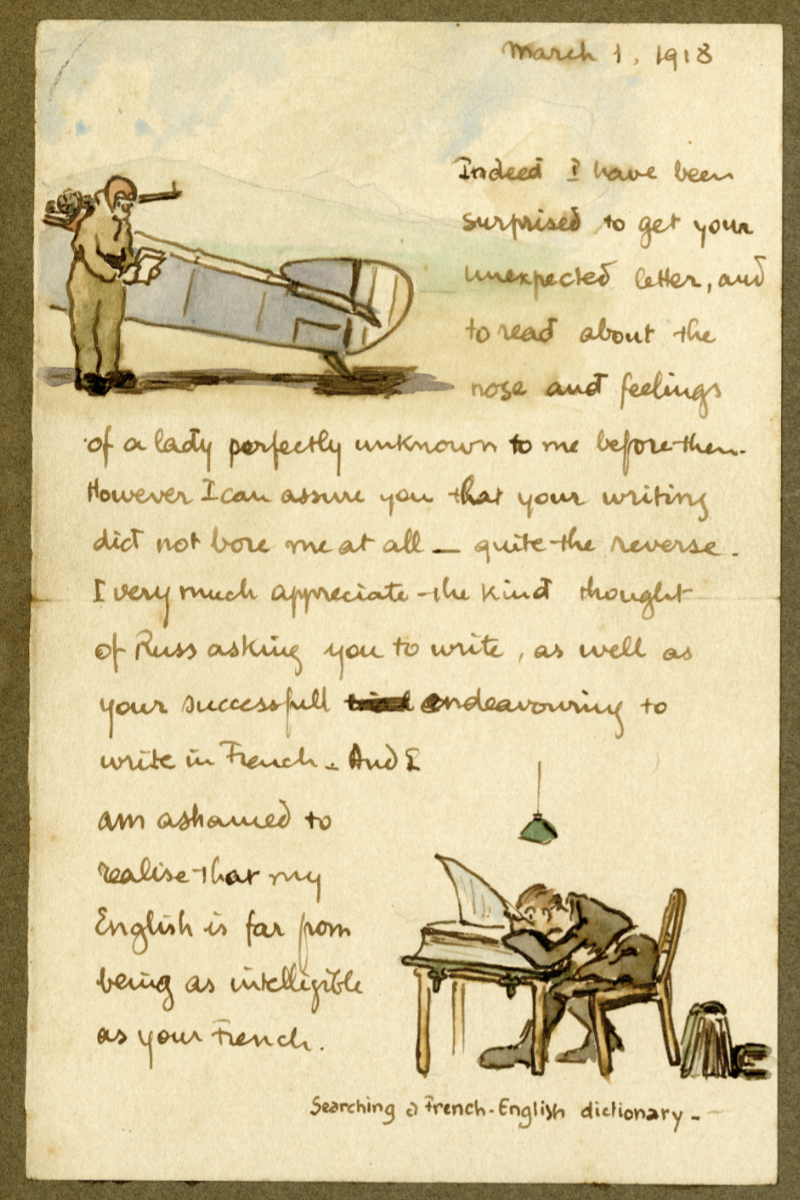 March 1, 1918
Indeed I have been
surprised to get your
unexpected letter, and
to read about the
nose and feelings
of a lady perfectly unknown to me before then.
However I can assure you that your writing
did not bore me at all — quite the reverse.
I very much appreciate the kind thought
of Russ asking you to write, as well as
your successfull endeavouring to
write in French. And I
am ashamed to
realise that my
English is far from
being as intelligible
as your French.
Searching a French-English dictionary -